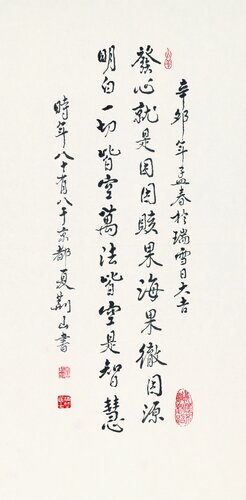 辛卯年孟春於瑞雪日大吉
發心就是因因賅果海果徹因源
明白一切皆空萬法皆空是智慧
時年八十有八于京都夏荊山書